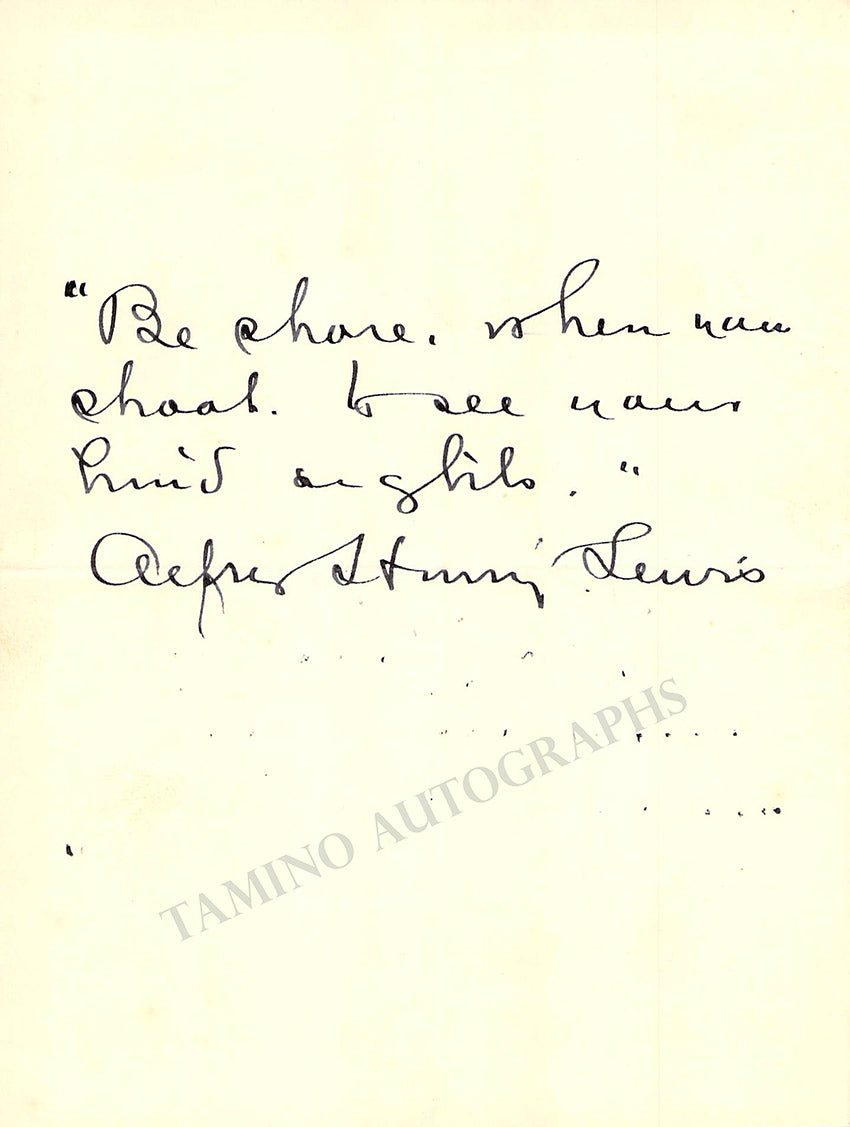 "Be shore, when you
shoot, to see your
hind sights."
Alfred Henry Lewis
TAMINO AUTOGRAPHS